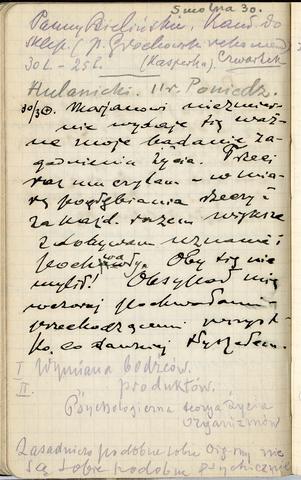 Smolna 30.
Panny Bielińskie, Kand. do
sklep. (p. Grochowsk rekomend
30 L - 25 L. (Kasperka) Czwartek
Hulanicki. 11 r. Poniedz.
30/3 Marjanowi niezmier-
nie wydaje się waż-
ne moje badanie za-
gadnienia życia. Trzeci
raz mu czytam - w mia-
rę pogłębiania rzeczy i
za każd. razem większe
zdobywam uznanie i
pochwały. Oby się nie
mylił! Obsypał mię
wczoraj pochwałami
przechodzącemi wszyst-
ko, co dawniej słyszałem.
I Wymiana bodźców.
II. produktów.
Psychologiczna teorja życia
organizmów
Zasadniczo podobne sobie org-my nie
są sobie podobne psychicznie